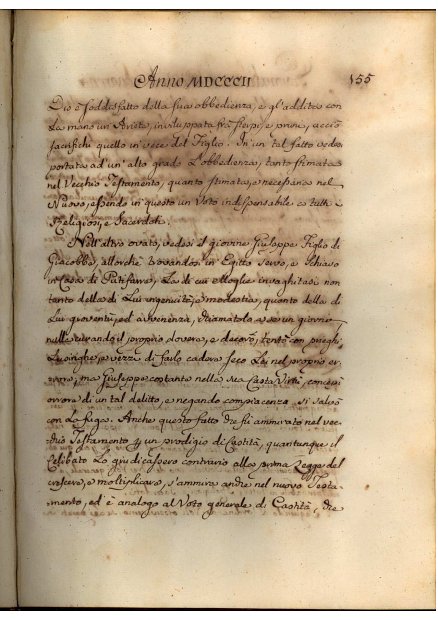 Anno MDCCCII 155
Dio è soddisfatto della sua obbedienza, e gl'addita con
la mano un Ariete, inviluppata frà sterpi, e pruni, acciò
sacrifichi quello in vece del Figlio. In un tal fatto vedesi
portata ad un'alto grado l'obbedienza, tanto stimata
nel Vecchio Testamento, quanto stimata, e necessaria nel
Nuovo, essendo in questo un Voto indispensabile a tutti i
Religiosi, e Sacerdoti.
Nell'altro ovato, vedesi il giovine Giuseppe Figlio di
Giacobbe, allorchè trovandosi in Egitto Servo, e Schiavo
in Casa di Putifarre, la di cui Moglie invaghitasi non
tanto della di Lui ingenuità, e modestia, quanto della di
Lui gioventù, ed avvenenza, chiamatolo a se un giorno,
nulla curando il proprio dovere, e decoro, tentò con prieghi,
Lusinghe, e vezzi di farlo cadere seco Lei nel proprio er-
rore, ma Giuseppe costante nella sua Casta Virtù, concepì
orrore di un tal delitto, e negando compiacenza, si salvò
con la fuga. Anche questo fatto che fù ammirato nel vec-
chio Testamento un prodigio di Castità, quantunque il
Celibato lo giudicassero contrario alla prima Legge del
crescere, e moltiplicare, s'ammira anche nel nuovo Testa-
mento, ed è analogo al Voto generale di Castità, che